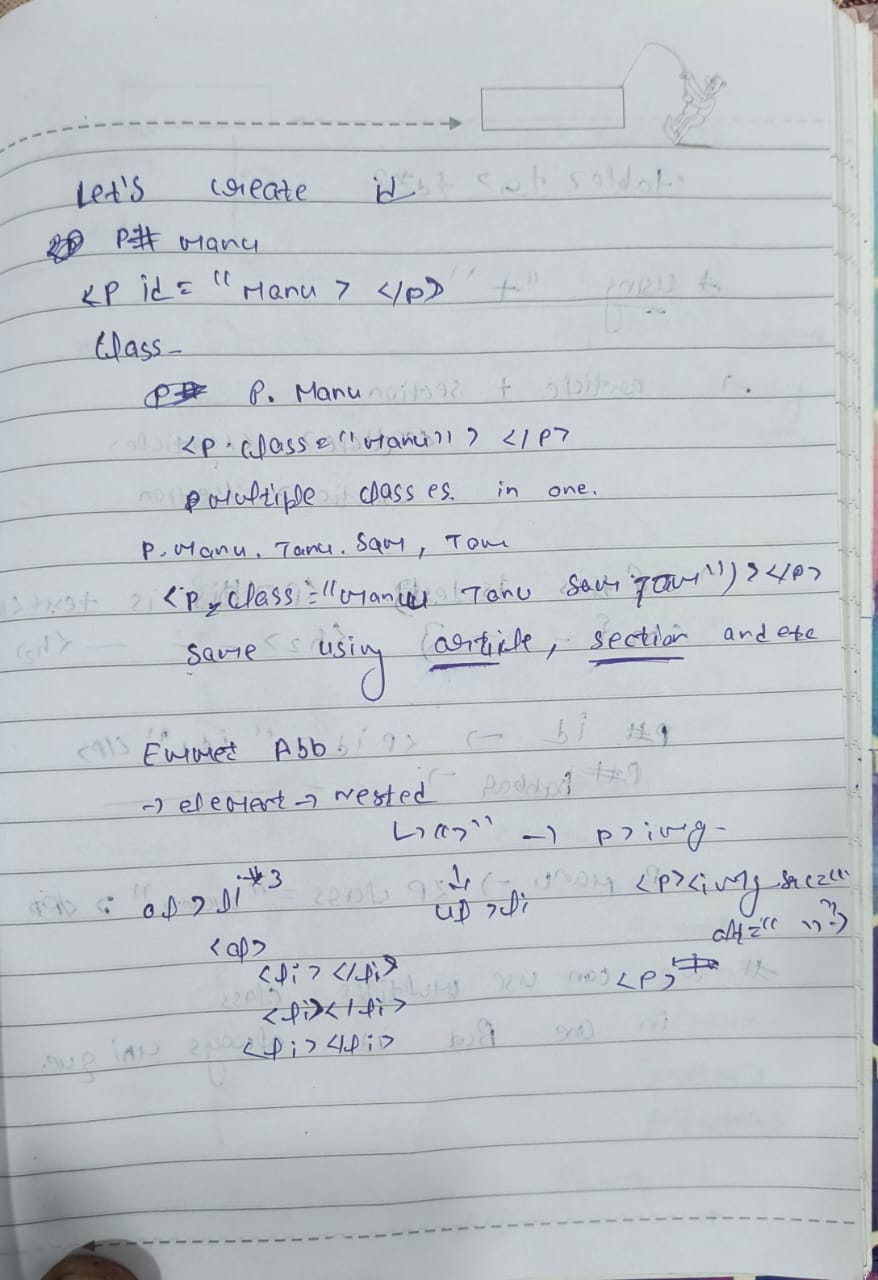 Let's create id
P# Manu
<p id= "Manu > </p>
Class -
P. Manu
<p. class = "Manu"> </p>
Multiple classes in one.
P. Manu. Tanu. Sam, Tom
<p class = "Manu Tanu Sam Tom")></p>
same using article, section and etc
Emmet Abb
→ element → nested
↳ ">" → p>img -
: ol > li*3
↓
ul > li
<p><img src=""
alt=" ">
<ol>
<li></li>
<p>
<li></li>
<li></li>